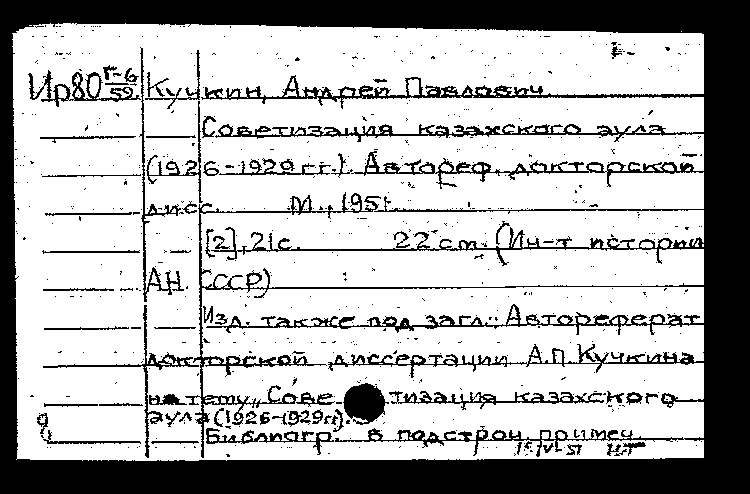 Ир80 Г-6/59 Кучкин, Андрей Павлович.
Советизация казахского аула
(1926-1929 гг.). Автореф. докторской
дисс. М., 1951.
[2], 21 с. 22 см. (Ин-т истории
АН СССР)
Изд. также под загл.: Автореферат
докторской диссертации А.П. Кучкина
на тему „Советизация казахского
аула (1926-1929 гг).
Библиогр. в подстроч. примеч.